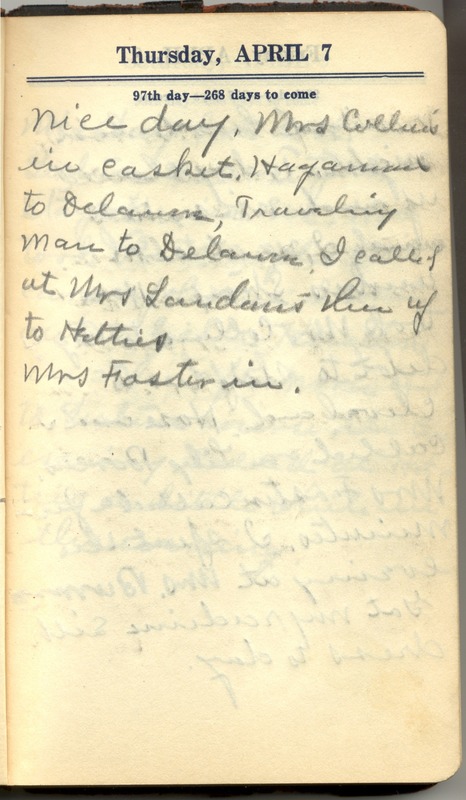 Thursday, APRIL 7
97th day—268 days to come
Nice day, Mrs Collins
in casket. Hagaman
to Delavan, Traveling
Man to Delavan, I called
at Mrs Landans then up
to Hetties.
Mrs Foster in.